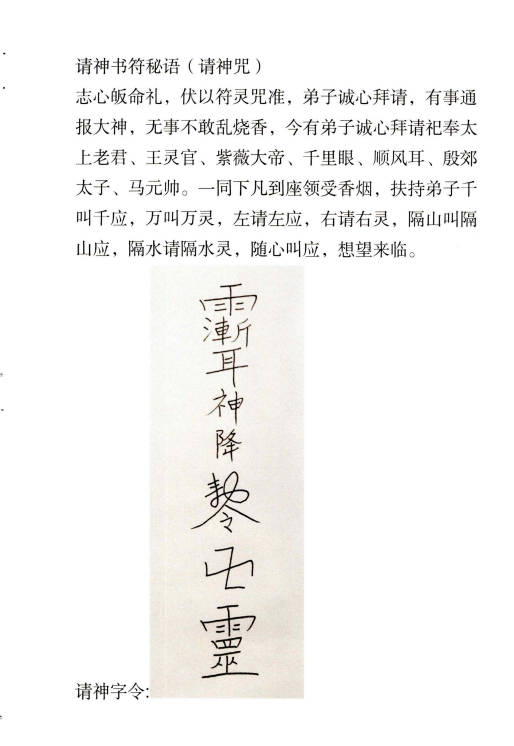 请神书符秘语（请神咒）
志心皈命礼，伏以符灵咒准，弟子诚心拜请，有事通
报大神，无事不敢乱烧香，今有弟子诚心拜请祀奉太
上老君、王灵官、紫薇大帝、千里眼、顺风耳、殷郊
太子、马元帅。一同下凡到座领受香烟，扶持弟子千
叫千应，万叫万灵，左请左应，右请右灵，隔山叫隔
山应，隔水请隔水灵，随心叫应，想望来临。
耳
神
降
靈
请神字令: